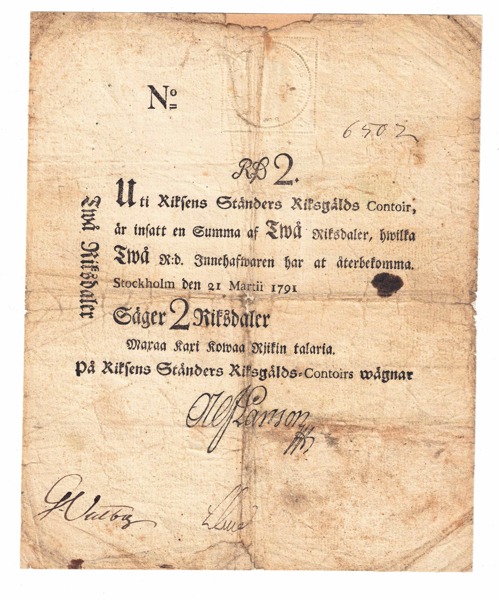 No
6502
RD 2.
Uti Riksens Ständers Riksgälds Contoir,
är insatt en Summa af Twå Riksdaler, hwilka
Twå R:d. Innehafwaren har at återbekomma.
Stockholm den 21 Martii 1791
Säger 2 Riksdaler
Maxaa Kaxi Kowaa Rjikin talaria.
På Riksens Ständers Riksgälds-Contoirs wägnar
Twå Riksdaler